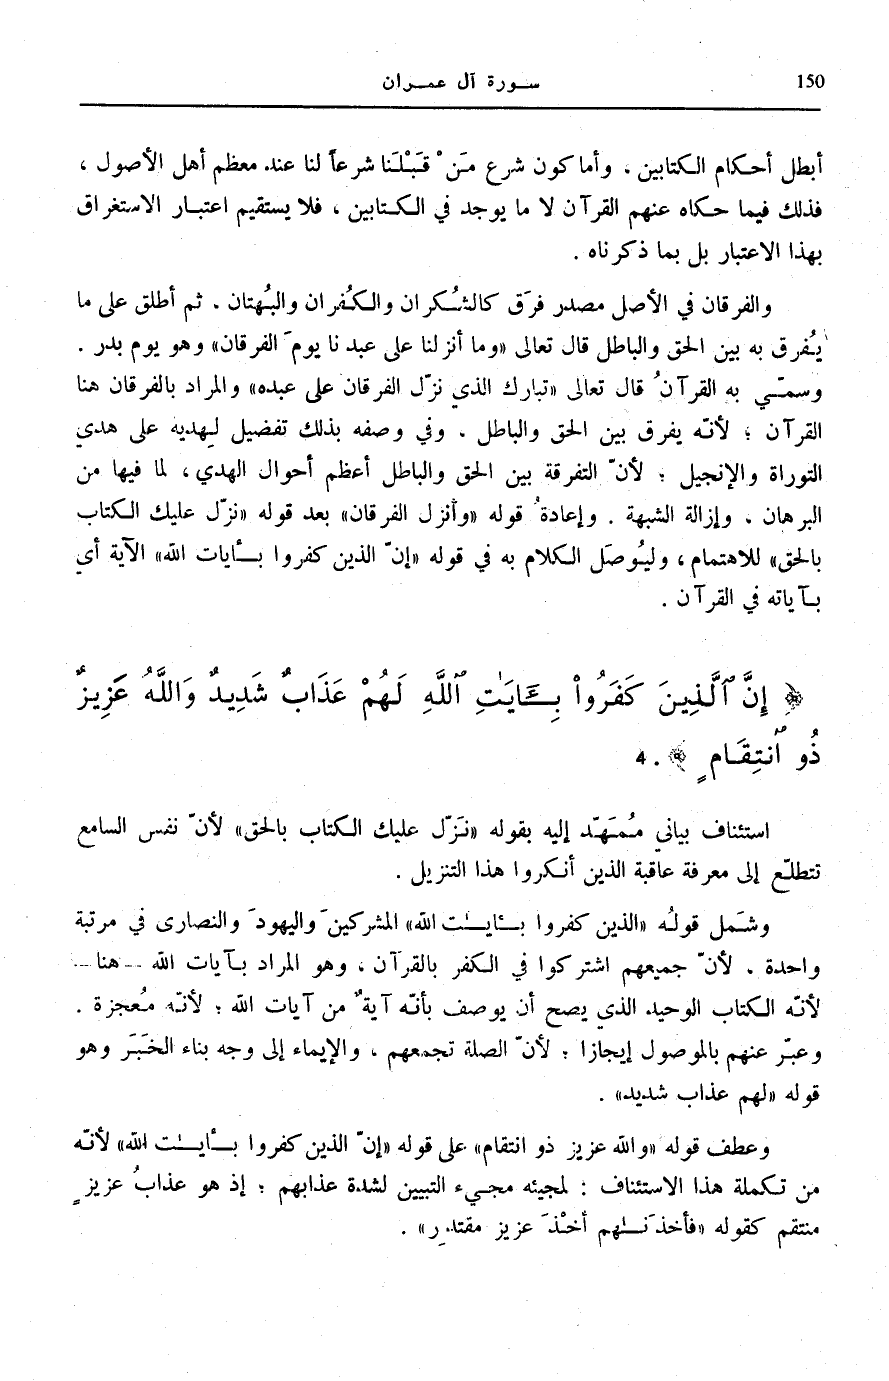 150
سورة آل عمران
أبطل أحكام الكتابين ، وأما كون شرع مَن ْ قَبْلَنا شرعاً لنا عند معظم أهل الأصول ،
فذلك فيما حكاه عنهم القرآن لا ما يوجد في الكتابين ، فلا يستقيم اعتبار الاستغراق
بهذا الاعتبار بل بما ذكرناه .
والفرقان في الأصل مصدر فرَق كالشُكران والكُفران والبُهتان . ثم أطلق على ما
يُفرق به بين الحق والباطل قال تعالى «وما أنزلنا على عبدنا يومَ الفرقان» وهو يوم بدر .
وسمّي به القرآنُ قال تعالى «تبارك الذي نزّل الفرقان على عبده» والمراد بالفرقان هنا
القرآن ؛ لأنّه يفرق بين الحق والباطل . وفي وصفه بذلك تفضيل لِهديه على هدي
التوراة والإنجيل ؛ لأنّ التفرقة بين الحق والباطل أعظم أحوال الهدي ، لما فيها من
البرهان . وإزالة الشبهة . وإعادةُ قوله «وأنزل الفرقان» بعد قوله «نزّل عليك الكتاب
بالحق» للاهتمام ، وليُوصَل الكلام به في قوله «إنّ الذين كفروا بـأيات الله» الآية أي
بـآياته في القرآن .
﴿ إِنَّ ٱلَّذِينَ كَفَرُواْ بِـَٔايَٰتِ ٱللَّهِ لَهُمْ عَذَابٌ شَدِيدٌ وَاللَّهُ عَزِيزٌ
ذُو ٱنتِقَامٍ ﴾ . 4
استئناف بياني مُمَهّد إليه بقوله «نَزّل عليك الكتاب بالحق» لأنّ نفس السامع
تتطلّع إلى معرفة عاقبة الذين أنكروا هذا التنزيل .
وشَمل قولُه «الذين كفروا بـأيـٰت الله» المشركينَ واليهودَ والنصارى في مرتبة
واحدة . لأنّ جميعهم اشتركوا في الكفر بالقرآن ، وهو المراد بـآيات الله — هنا —
لأنّه الكتاب الوحيد الذي يصح أن يوصف بأنّه آيةٌ من آيات الله ؛ لأنّه مُعجزة .
وعبّر عنهم بالموصول إيجازا ؛ لأنّ الصلة تجمعهم ، والإيماء إلى وجه بناء الخَبَر وهو
قوله «لهم عذاب شديد» .
وعطف قوله «والله عزيز ذو انتقام» على قوله «إنّ الذين كفروا بـأيـٰت الله» لأنّه
من تكملة هذا الاستئناف : لمجيئه مجيء التبيين لشدة عذابهم ؛ إذ هو عذابُ عزيزٍ
منتقم كقوله «فأخذنَـٰهم أخْذَ عزيز مقتدرٍ» .